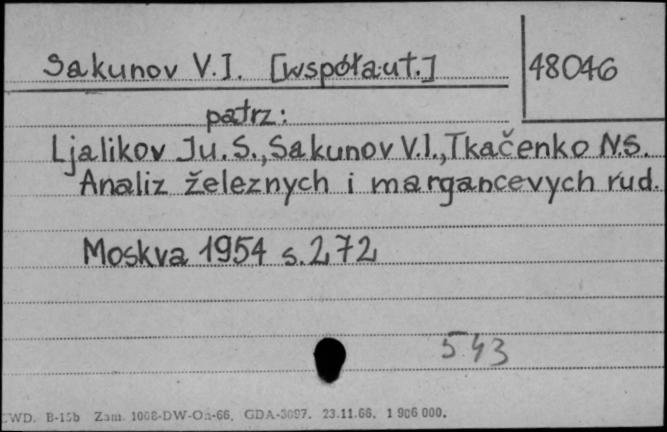 Sakunov V.I. [współaut.] 48046
patrz:
Ljalikov Ju. S., Sakunov V.I., Tkačenko N.S.
Analiz železnych i margancevych rud.
Moskva 1954 s. 272
543
WD. B-15b Zam. 1008-DW-Oń-66. GDA-3097. 23.11.66. 1 906 000.